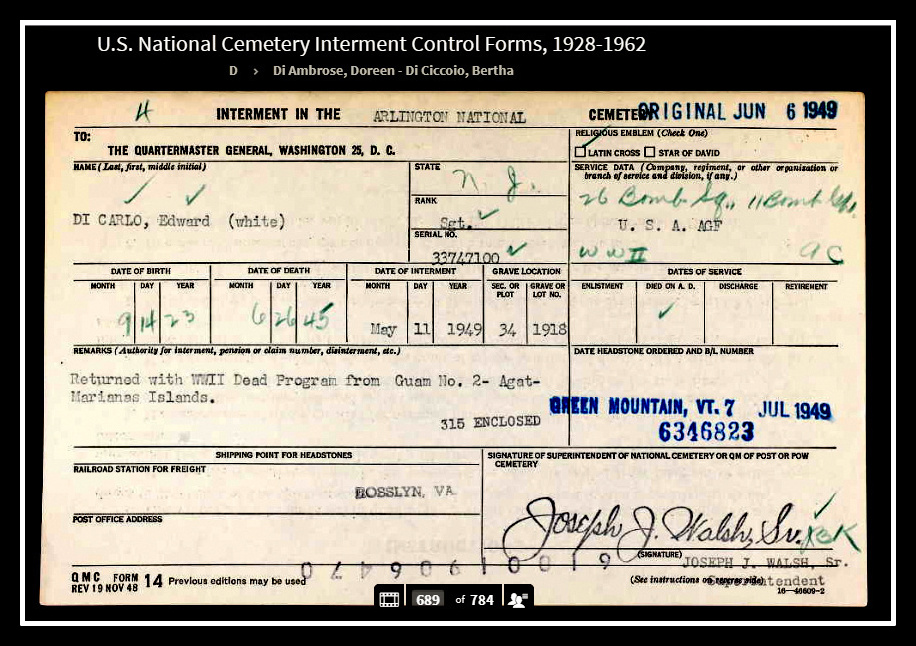 U.S. National Cemetery Interment Control Forms, 1928-1962
D › Di Ambrose, Doreen - Di Ciccoio, Bertha
H INTERMENT IN THE ARLINGTON NATIONAL CEMETERY ORIGINAL JUN 6 1949
TO:
THE QUARTERMASTER GENERAL, WASHINGTON 25, D. C.
RELIGIOUS EMBLEM (Check One)
LATIN CROSS STAR OF DAVID
NAME (Last, first, middle initial)
DI CARLO, Edward (white)
STATE
N. J.
RANK
Sgt.
SERIAL NO.
33747100
SERVICE DATA (Company, regiment, or other organisation or branch of service and division, if any.)
26 Bomb Sq., 11 Bomb Gp.
U. S. A. AGF
WWII AC
DATE OF BIRTH
MONTH DAY YEAR
9 14 23
DATE OF DEATH
MONTH DAY YEAR
6 26 45
DATE OF INTERMENT
MONTH DAY YEAR
May 11 1949
GRAVE LOCATION
SEC. OR PLOT GRAVE OR LOT NO.
34 1918
DATES OF SERVICE
ENLISTMENT DIED ON A. D. DISCHARGE RETIREMENT
REMARKS (Authority for interment, pension or claim number, disinterment, etc.)
Returned with WWII Dead Program from Guam No. 2- Agat-
Marianas Islands.
315 ENCLOSED
DATE HEADSTONE ORDERED AND B/L NUMBER
GREEN MOUNTAIN, VT. 7 JUL 1949
6346823
SHIPPING POINT FOR HEADSTONES
RAILROAD STATION FOR FREIGHT
ROSSLYN, VA
POST OFFICE ADDRESS
SIGNATURE OF SUPERINTENDENT OF NATIONAL CEMETERY OR QM OF POST OR POW
CEMETERY
Joseph J. Walsh, Sr. KBK
(SIGNATURE)
JOSEPH J. WALSH, Sr.
Superintendent
(See instructions on reverse side)
16—46609-2
QMC FORM 14 Previous editions may be used
REV 19 NOV 48
689 of 784